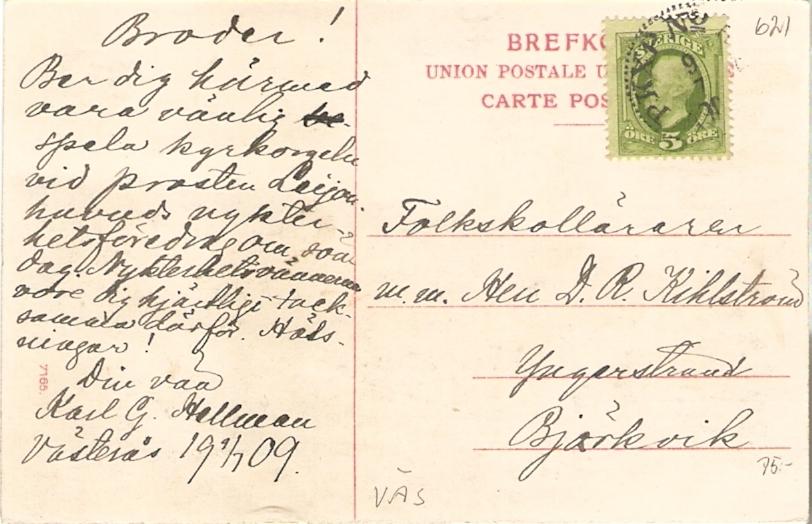 Broder!
Ber dig härmed
vara vänlig
spela kyrkorgeln
vid prosten Leijon-
huvuds nykter-
hetsföredrag om sön-
dag. Nykterhetsvännerna
vore dig hjärtligt tack-
samma därför. Häls-
ningar!
Din vän
Karl G. Hellman
Västerås 19 9/7 09.
7165.
BREFKO
UNION POSTALE U
CARTE POS
SVERIGE
ÖRE 5 ÖRE
PKXP No
621
Folkskolläraren
m.m. Herr D. R. Kihlstrand
Yngerstrand
Björkvik
75:-
VÄS